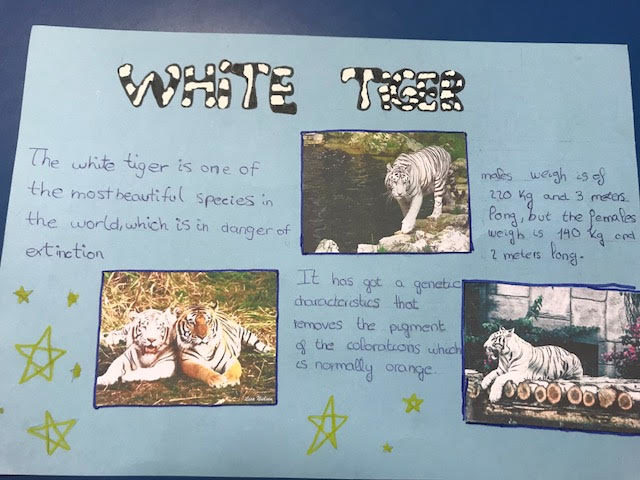 WHITE TIGER
The white tiger is one of
the most beautiful species in
the world, which is in danger of
extinction
males weigh is of
220 kg and 3 meters
long, but the females
weigh is 140 kg and
2 meters long.
It has got a genetic
characteristics that
removes the pigment
of the colorations which
is normally orange.